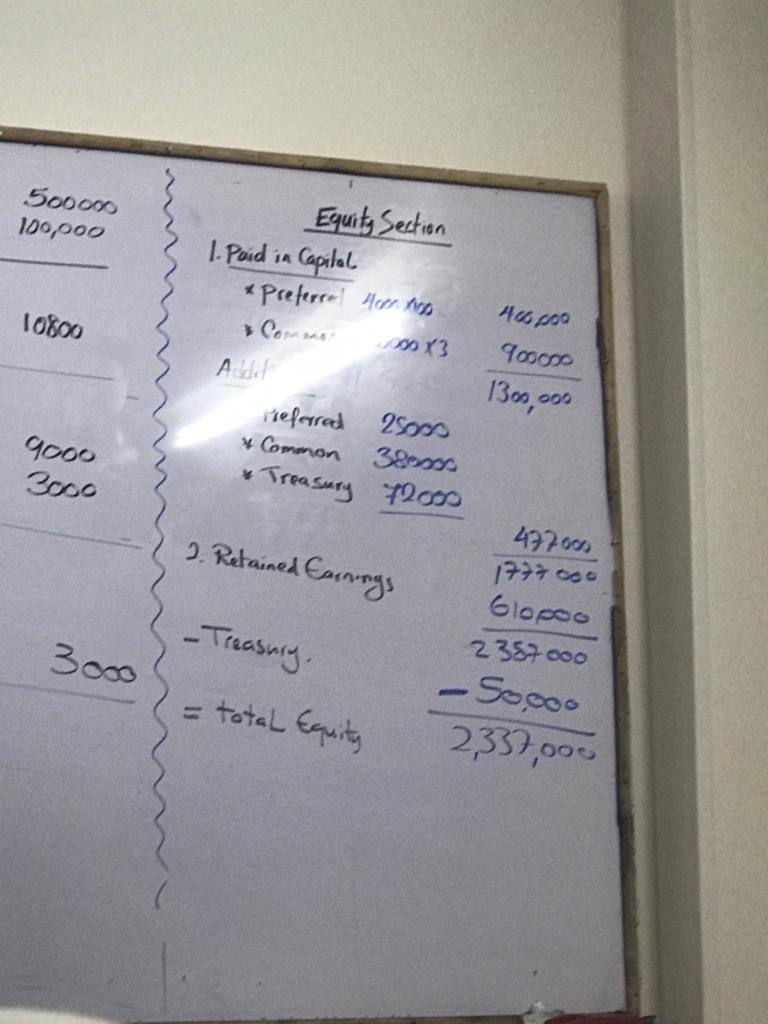 500000
100,000
10800
9000
3000
3000
Equity Section
1. Paid in Capital
* Preferred 4000x100 400,000
* x3 900000
1300,000
Preferred 25000
* Common 380000
* Treasury 72000
477000
1777000
2. Retained Earnings 610,000
2387000
- Treasury. - 50,000
= total Equity 2,337,000